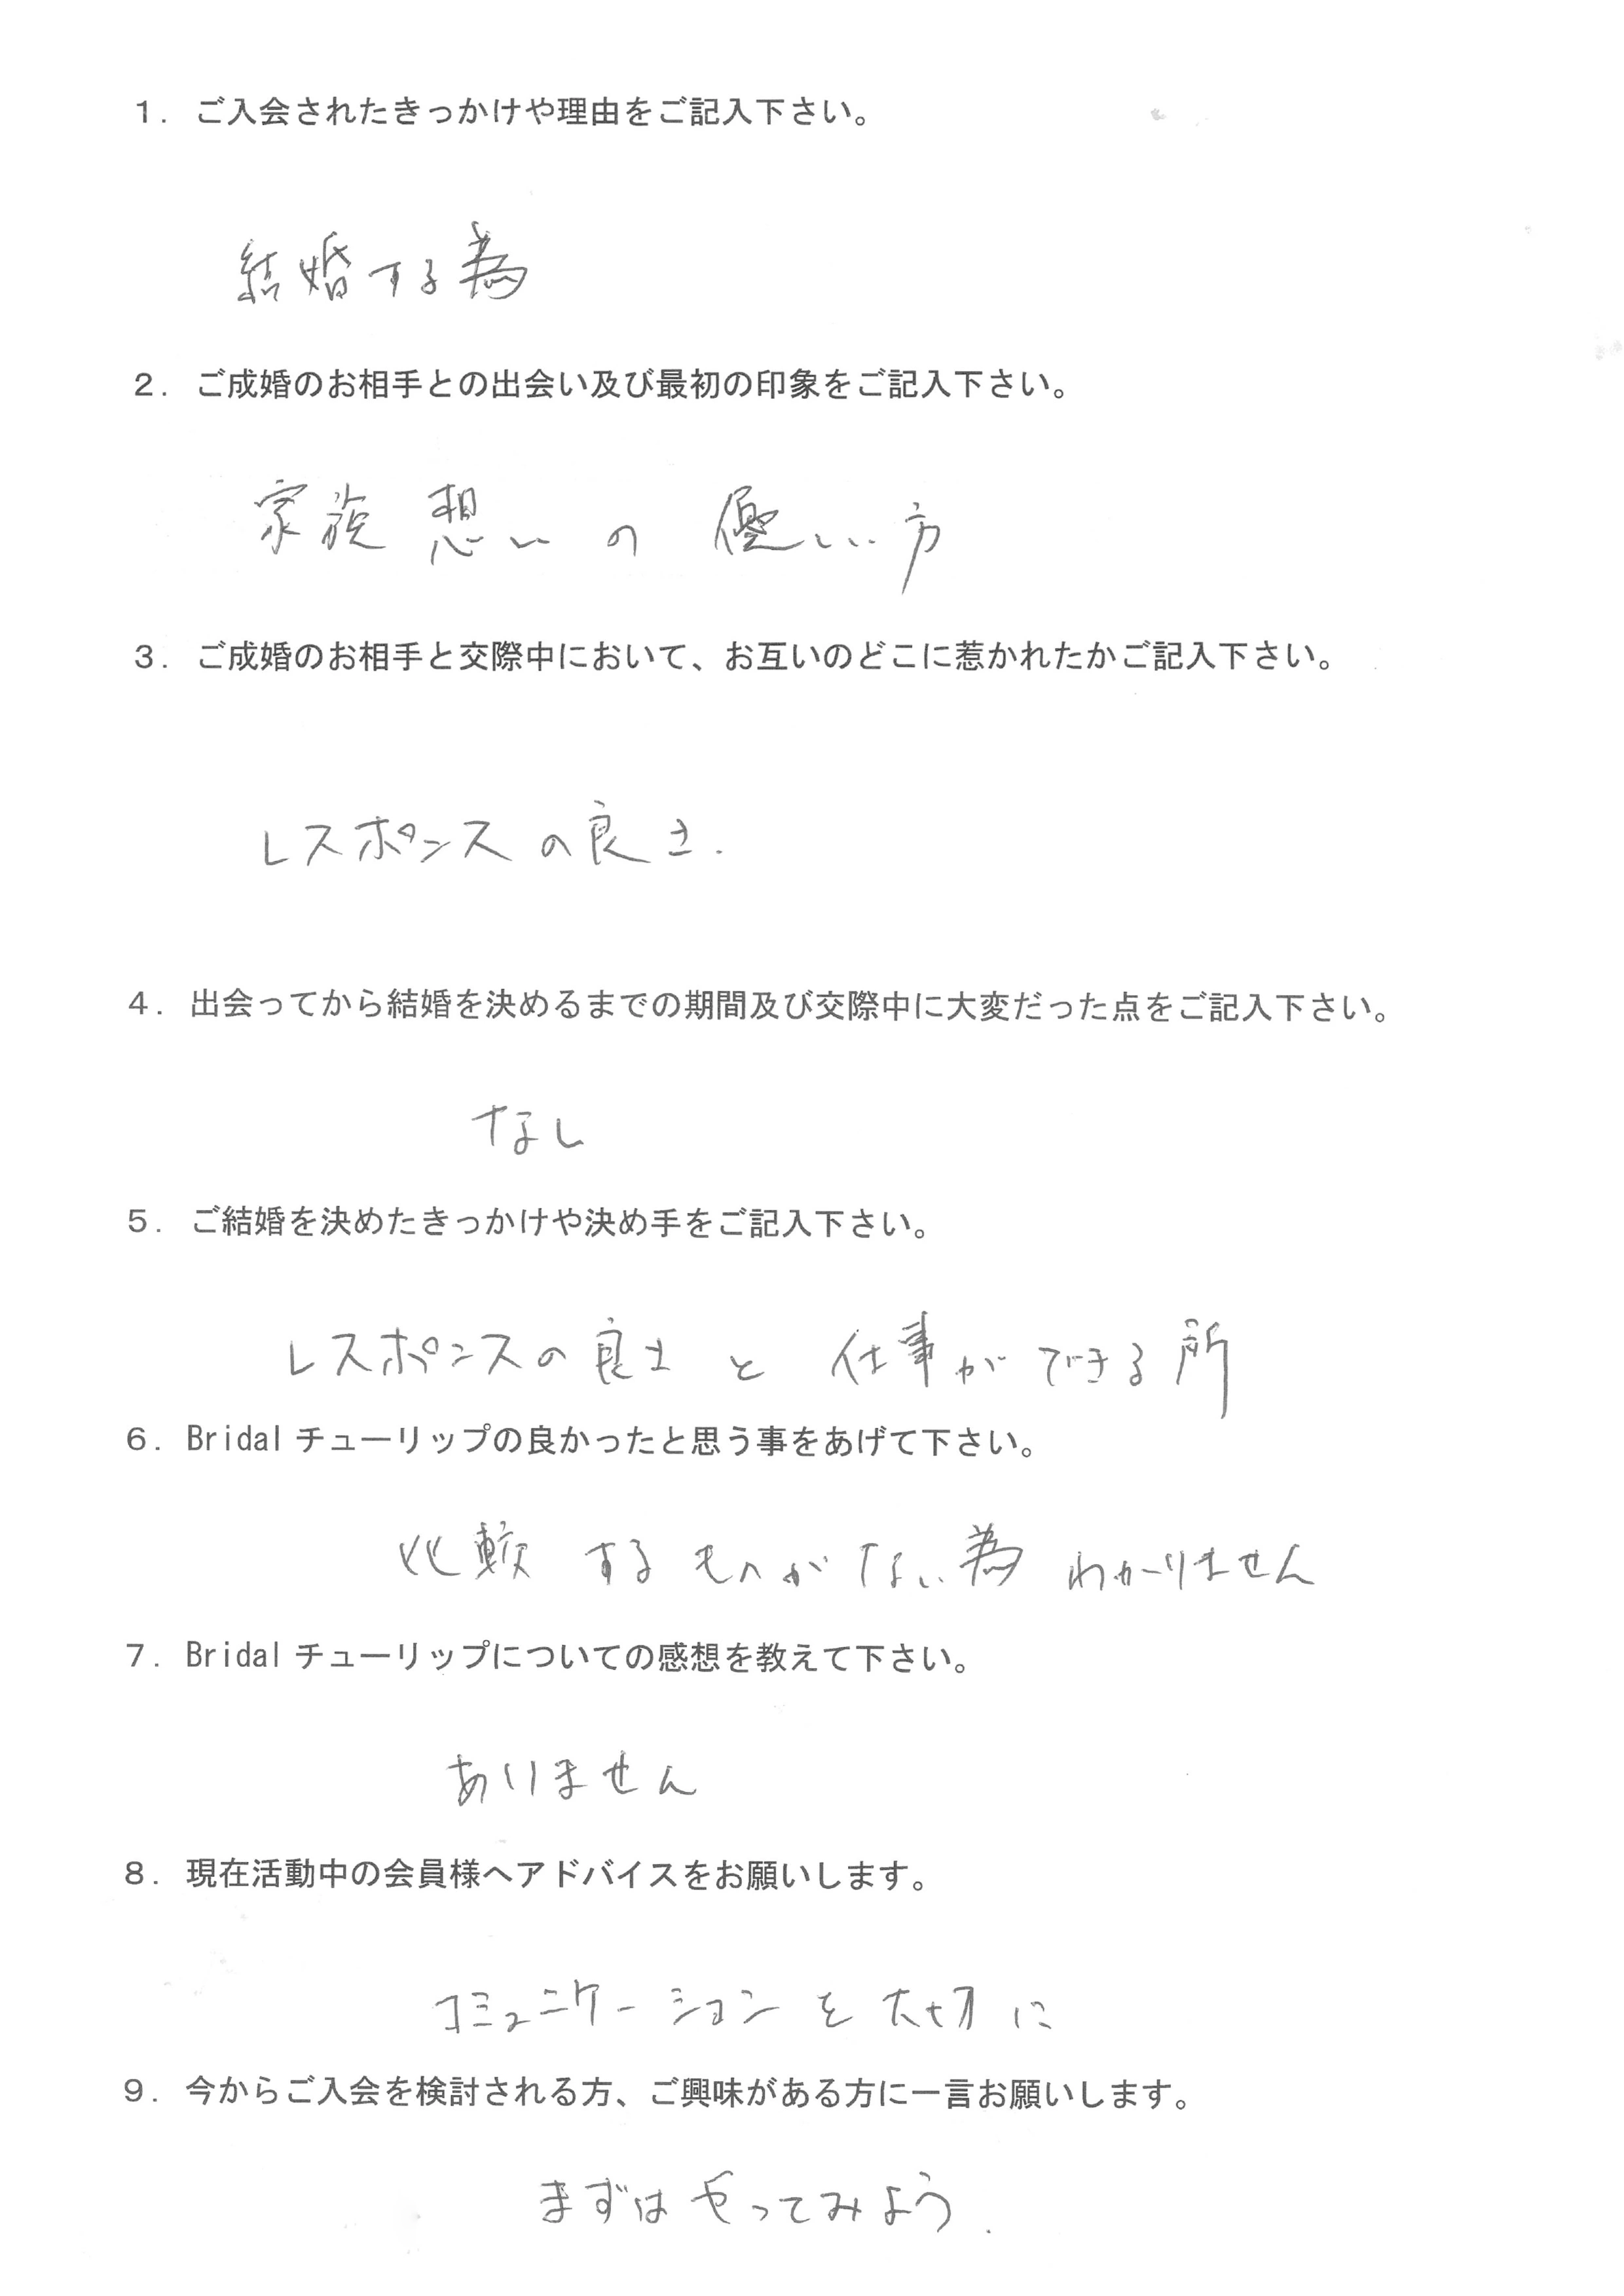 １．ご入会されたきっかけや理由をご記入下さい。
結婚する為
２．ご成婚のお相手との出会い及び最初の印象をご記入下さい。
家族想いの優しい方
３．ご成婚のお相手と交際中において、お互いのどこに惹かれたかご記入下さい。
レスポンスの良さ.
４．出会ってから結婚を決めるまでの期間及び交際中に大変だった点をご記入下さい。
なし
５．ご結婚を決めたきっかけや決め手をご記入下さい。
レスポンスの良さと仕事ができる所
６．Bridalチューリップの良かったと思う事をあげて下さい。
比較するものがない為わかりません
７．Bridalチューリップについての感想を教えて下さい。
ありません
８．現在活動中の会員様へアドバイスをお願いします。
コミュニケーションを大切に
９．今からご入会を検討される方、ご興味がある方に一言お願いします。
まずはやってみよう.